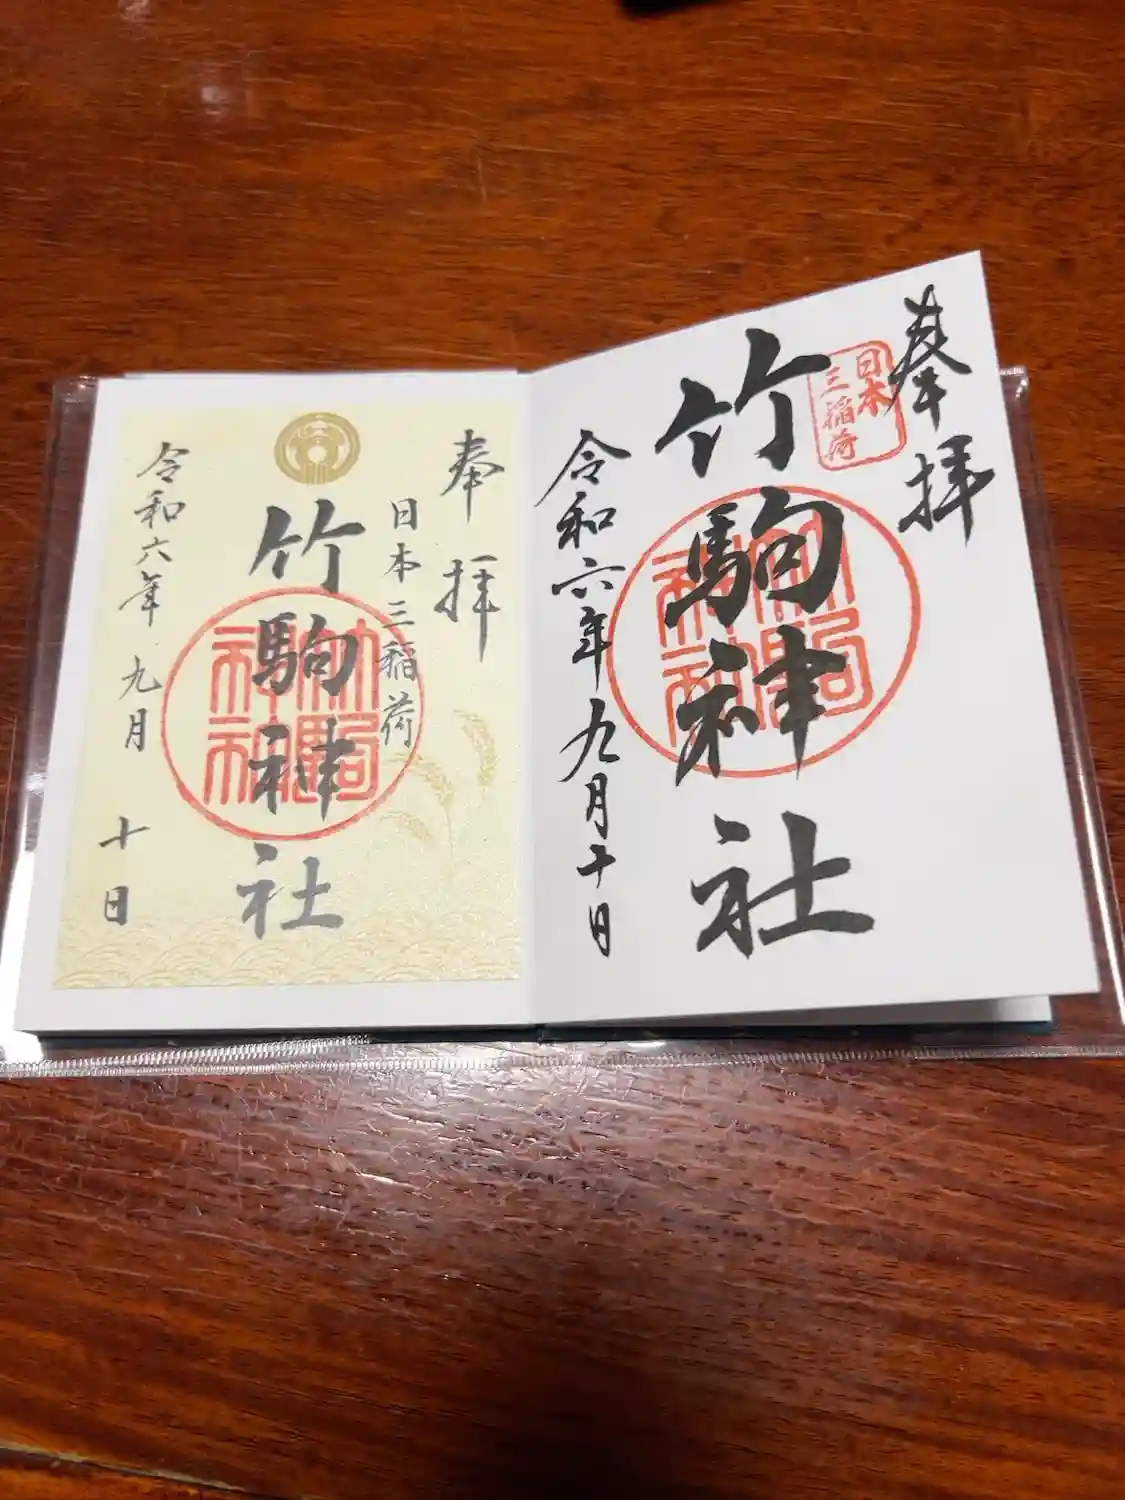 奉拝
日本
三稲荷
竹駒神社
竹駒
神社
令和六年九月十日
奉拝
日本三稲荷
竹駒神社
竹駒
神社
令和六年九月十日